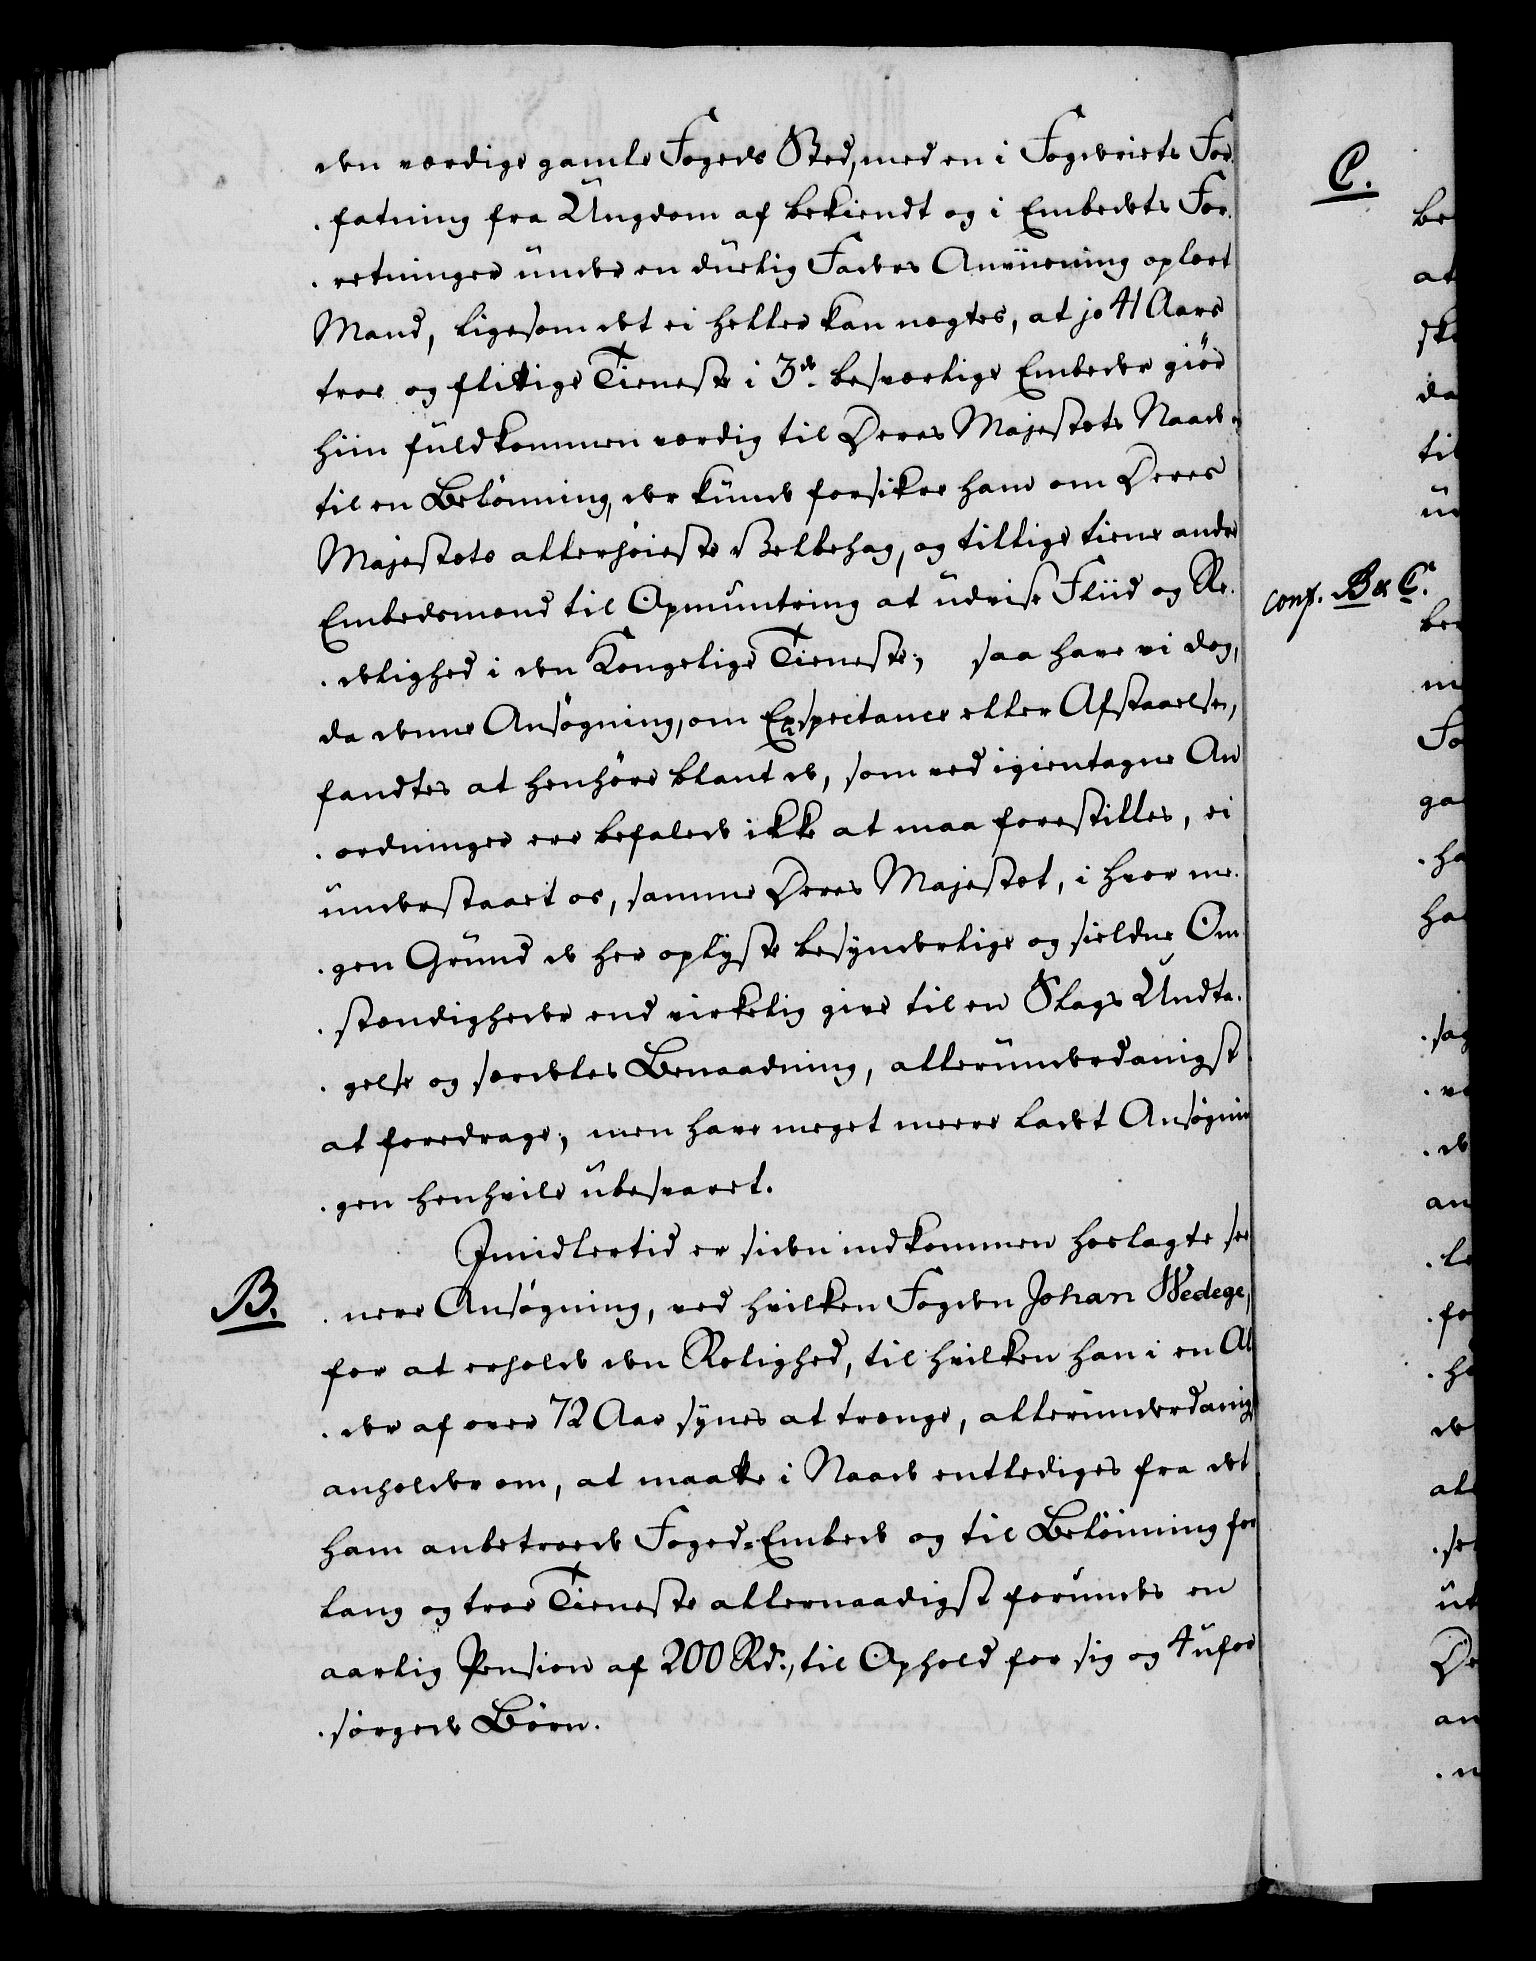 den værdige gamle Fogeds Sted, med en i Fogderiets For
. fatning fra Ungdom af bekiendt og i Embedets For.
. retninger under en duelig Faders Anviisning oplært
Mand, ligesom det ei heller kan nægtes, at jo 41 Aars
troe og flittige Tieneste i 3de besværlige Embeder giør
ham fuldkommen værdig til Deres Majestæts Naade
til en Belønning, der kunde forsikre ham om Deres
Majestæts allerhøieste Velbehag, og tillige tiene andre
Embedsmænd til Opmuntring at udvise Fliid og Re.
. delighed i den Kongelige Tieneste; saa have vi dog,
da denne Ansøgning, om Exspectance eller Afstaaelse,
fandtes at henhøre blant de, som ved igientagne An
. ordninger ere befalede ikke at maa forestilles, ei
understaaet os, samme Deres Majestæt, i hvor me.
. gen Grund de her oplyste besynderlige og sieldne Om
. stændigheder end virkelig give til en Slags Undta.
. gelse og særdeles Benaadning, allerunderdanigst
at foredrage; men have meget meere ladet Ansøgnin
. gen henhvile ubesvaret.
Imidlertid er siden indkommen hoslagte see
B.
. nere Ansøgning, ved hvilken Fogden Johan Wedege,
for at erholde den Rolighed, til hvilken han i en Al
. der af over 72 Aar synes at trænge, allerunderdanigst
anholder om, at maatte i Naade entlediges fra det
ham anbetroede Foged-Embede og til Belønning for
lang og troe Tieneste allernaadigst forundes en
aarlig Pension af 200 Rd., til Ophold for sig og 4 ufor
. sørgede Børn.
C.
conf. B & C.